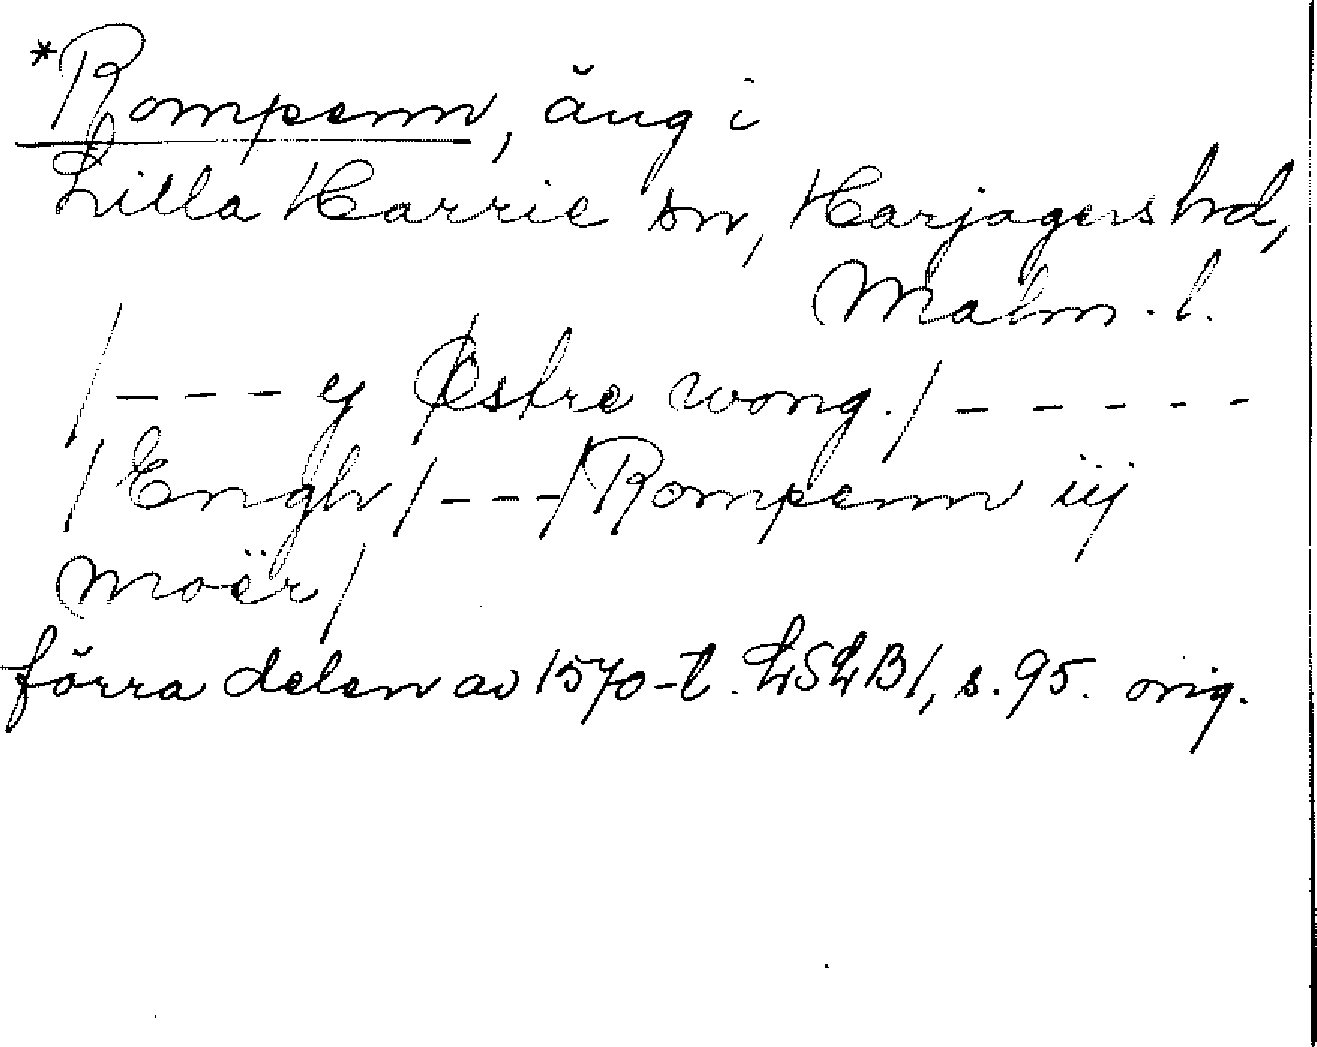 *Rompenn, äng i
Lilla Harrie sn, Harjagers hd,
Malm. l.
/---- ij Østre wong./-----
/Engh/---/Rompenn iij
moër/
förra delen av 1570-t. LSLB1, s. 95. orig.